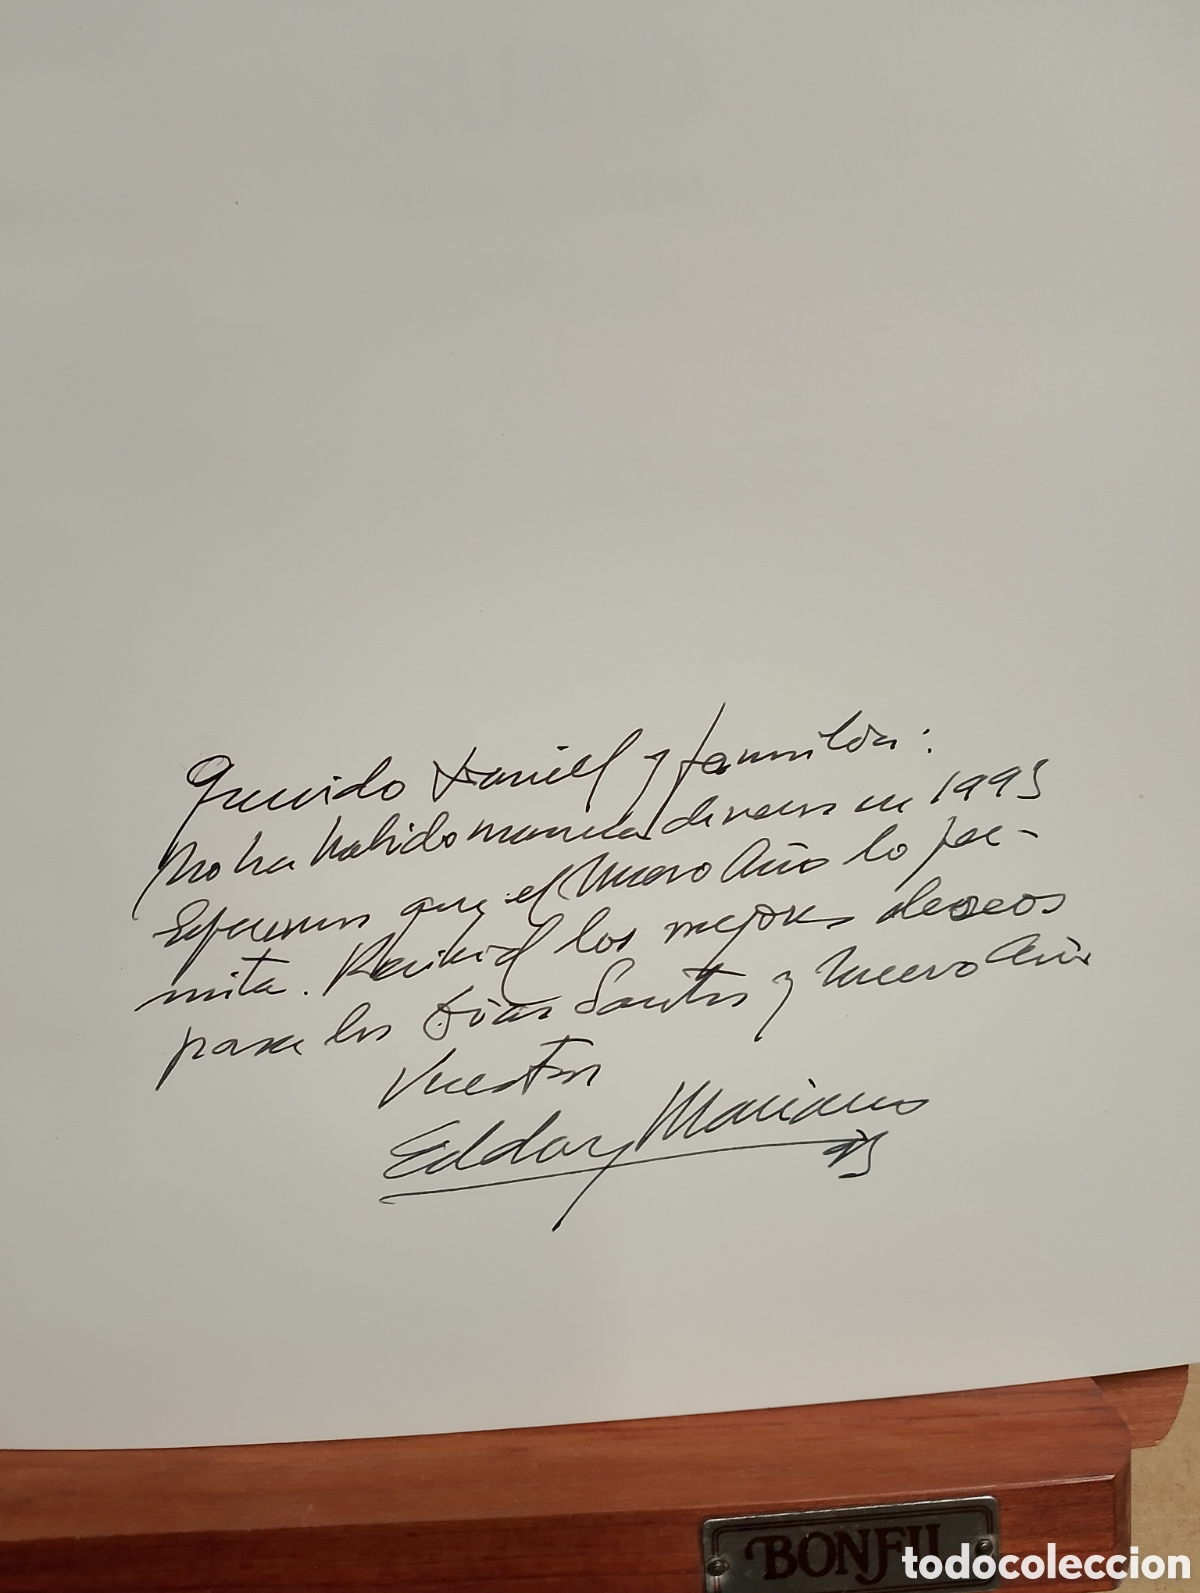 Querido Daniel y familia:
No ha habido manera de veros en 1995
Esperemos que el Nuevo Año lo per-
mita. Recibid los mejores deseos
para los Días Santos y Nuevo Año
Vuestro
Edday Mariano
95
BONFIL
todocoleccion